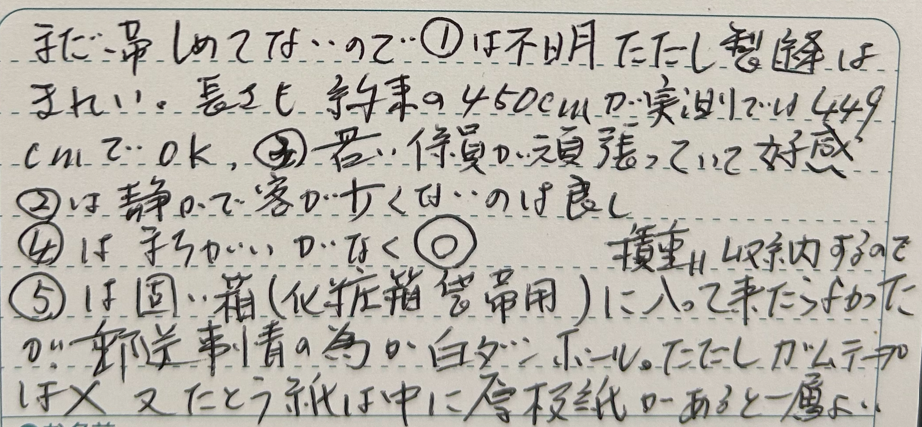 まだ帯しめてないので①は不明 ただし製縫は
きれい。長さも約束の450cmが実測では449
cmでOK、③若い係員が頑張っていて好感
②は静かで客が少くないのは良し
④はまちがいがなく◎ 積重 収納するので
⑤は固い箱(化粧箱 袋帯用)に入って来たらよかった
が郵送事情の為か白ダンボール。ただしガムテープ
は× 又たとう紙は中に厚板紙があると一層よい